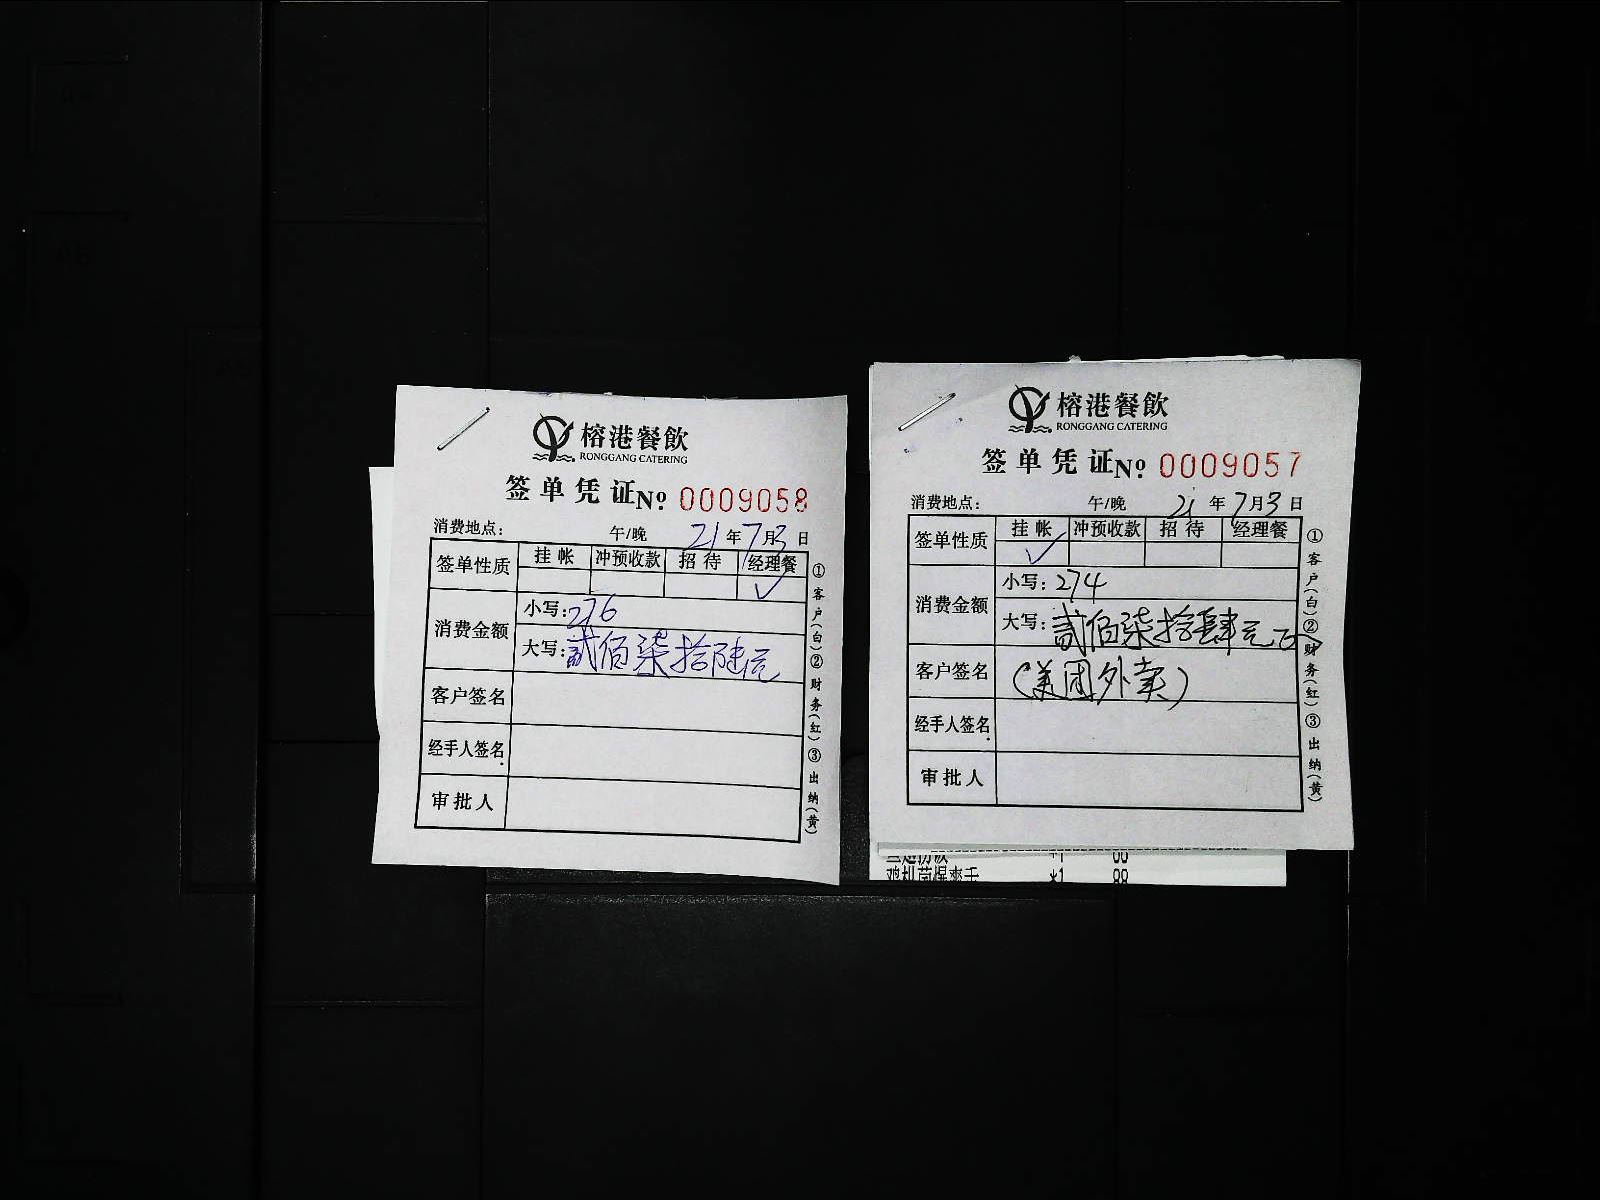 榕港餐飲
RONGGANG CATERING
签单凭证 No 0009058
消费地点： 午/晚 21年7月3日
签单性质 挂帐 冲预收款 招待 经理餐
✓
消费金额 小写：276
大写：贰佰柒拾陆元
客户签名
经手人签名
审批人
①客户(白)②财务(红)③出纳(黄)
榕港餐飲
RONGGANG CATERING
签单凭证 No 0009057
消费地点： 午/晚 21年7月3日
签单性质 挂帐 冲预收款 招待 经理餐
✓
消费金额 小写：274
大写：贰佰柒拾肆元
客户签名 (美团外卖)
经手人签名
审批人
①客户(白)②财务(红)③出纳(黄)
*1 88